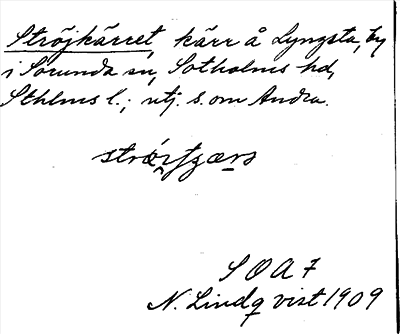 Ströjkärret, kärr å Lyngsta, by
i Sorunda sn, Sotholms hd,
Sthlms l.; utj. s. om Andra.
S O A 7
N. Lindqvist 1909